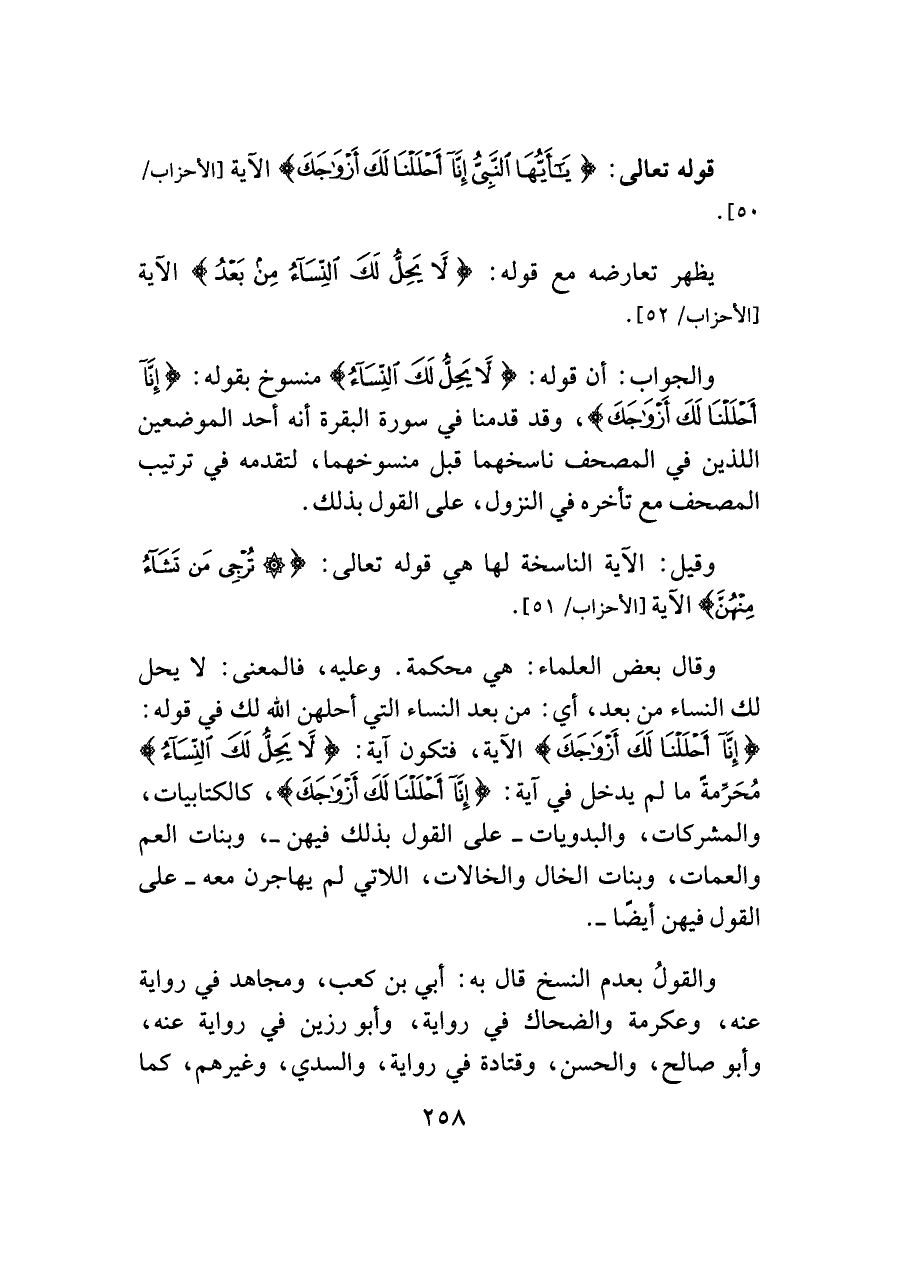 قوله تعالى: ﴿ يَٰٓأَيُّهَا ٱلنَّبِيُّ إِنَّآ أَحۡلَلۡنَا لَكَ أَزۡوَٰجَكَ﴾ الآية [الأحزاب/
٥٠].
يظهر تعارضه مع قوله: ﴿ لَّا يَحِلُّ لَكَ ٱلنِّسَآءُ مِنۢ بَعۡدُ ﴾ الآية
[الأحزاب/ ٥٢].
والجواب: أن قوله: ﴿ لَّا يَحِلُّ لَكَ ٱلنِّسَآءُ﴾ منسوخ بقوله: ﴿ إِنَّآ
أَحۡلَلۡنَا لَكَ أَزۡوَٰجَكَ﴾، وقد قدمنا في سورة البقرة أنه أحد الموضعين
اللذين في المصحف ناسخهما قبل منسوخهما، لتقدمه في ترتيب
المصحف مع تأخره في النزول، على القول بذلك.
وقيل: الآية الناسخة لها هي قوله تعالى: ﴿ ۞ تُرۡجِي مَن تَشَآءُ
مِنۡهُنَّ﴾ الآية [الأحزاب/ ٥١].
وقال بعض العلماء: هي محكمة. وعليه، فالمعنى: لا يحل
لك النساء من بعد، أي: من بعد النساء التي أحلهن الله لك في قوله:
﴿ إِنَّآ أَحۡلَلۡنَا لَكَ أَزۡوَٰجَكَ﴾ الآية، فتكون آية: ﴿ لَّا يَحِلُّ لَكَ ٱلنِّسَآءُ ﴾
مُحَرِّمةً ما لم يدخل في آية: ﴿ إِنَّآ أَحۡلَلۡنَا لَكَ أَزۡوَٰجَكَ﴾، كالكتابيات،
والمشركات، والبدويات ـ على القول بذلك فيهن ـ، وبنات العم
والعمات، وبنات الخال والخالات، اللاتي لم يهاجرن معه ـ على
القول فيهن أيضًا ـ.
والقولُ بعدم النسخ قال به: أبي بن كعب، ومجاهد في رواية
عنه، وعكرمة والضحاك في رواية، وأبو رزين في رواية عنه،
وأبو صالح، والحسن، وقتادة في رواية، والسدي، وغيرهم، كما
٢٥٨